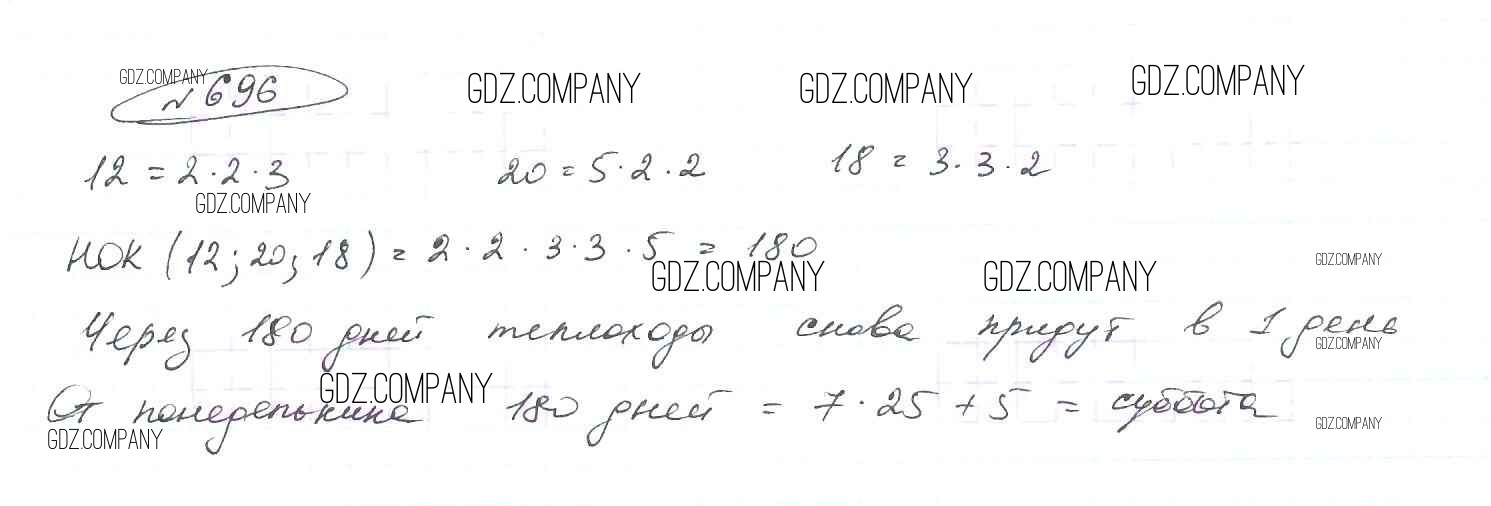 GDZ.COMPANY
№ 696 GDZ.COMPANY GDZ.COMPANY GDZ.COMPANY
12 = 2·2·3 20 = 5·2·2 18 = 3·3·2
GDZ.COMPANY
НОК (12; 20; 18) = 2·2·3·3·5 = 180
GDZ.COMPANY GDZ.COMPANY GDZ.COMPANY
Через 180 дней теплоходы снова придут в 1 день
GDZ.COMPANY
GDZ.COMPANY
От понедельника 180 дней = 7·25 + 5 = суббота
GDZ.COMPANY GDZ.COMPANY